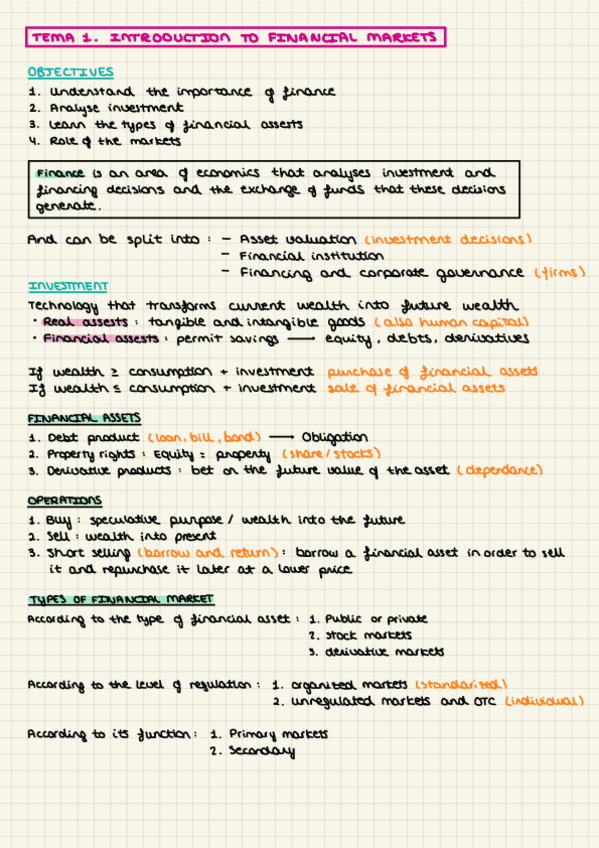 TEMA 1. INTRODUCTION TO FINANCIAL MARKETS
OBJECTIVES
1. Understand the importance of finance
2. Analyse investment
3. Learn the types of financial assests
4. Role of the markets
Finance is an area of economics that analyses investment and
financing decisions and the exchange of funds that these decisions
generate.
And can be split into : - Asset valuation (investment decisions)
- Financial institution
- Financing and corporate governance (firms)
INVESTMENT
Technology that transforms current wealth into future wealth
· Real assests : tangible and intangible goods (also human capital)
· Financial assests : permit savings → equity, debts, derivatives
If wealth ≥ consumption + investment purchase of financial assets
If wealth ≤ consumption + investment sale of financial assets
FINANCIAL ASSETS
1. Debt product (loan, bill, bond) → Obligation
2. Property rights : Equity = property (share/stocks)
3. Derivative products : bet on the future value of the asset (dependance)
OPERATIONS
1. Buy : speculative purpose / wealth into the future
2. Sell : wealth into present
3. Short selling (borrow and return) : borrow a financial asset in order to sell
it and repurchase it later at a lower price
TYPES OF FINANCIAL MARKET
According to the type of financial asset : 1. Public or private
2. stock markets
3. derivative markets
According to the level of regulation : 1. organized markets (standarized)
2. unregulated markets and OTC (individual)
According to its function : 1. Primary markets
2. Secondary